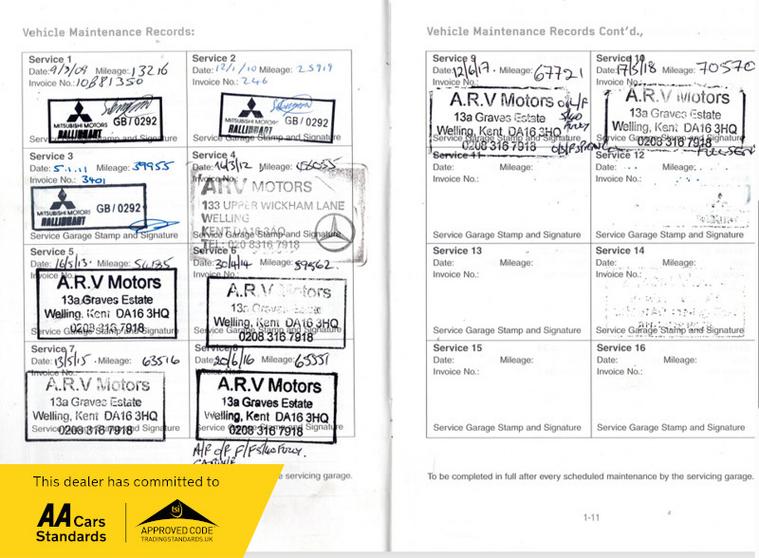 Vehicle Maintenance Records:
Service 1
Date: 9/3/09 Mileage: 13216
Invoice No.: 10B81350
MITSUBISHI MOTORS
RALLIBHART
GB/0292
Service Garage Stamp and Signature
Service 2
Date: 12/1/10 Mileage: 25919
Invoice No.: 246
MITSUBISHI MOTORS
RALLIBHART
GB/0292
Service Garage Stamp and Signature
Service 3
Date: 5.1.11 Mileage: 39955
Invoice No.: 3401
MITSUBISHI MOTORS
RALLIBHART
GB/0292
Service Garage Stamp and Signature
Service 4
Date: 14/3/12 Mileage:
Invoice No.:
ARV MOTORS
133 UPPER WICKHAM LANE
WELLING
KENT DA16 3AQ
TEL: 020 8316 7918
Service Garage Stamp and Signature
Service 5
Date: 16/5/13. Mileage:
Invoice No.:
A.R.V Motors
13a Graves Estate
Welling, Kent DA16 3HQ
0208 316 7918
Service Garage Stamp and Signature
Service 6
Date: 30/4/14 Mileage: 59562.
Invoice No.:
A.R.V Motors
13a Graves Estate
Welling, Kent DA16 3HQ
0208 316 7918
Service Garage Stamp and Signature
Service 7
Date: 13/5/15 Mileage: 63516
Invoice No.:
A.R.V Motors
13a Graves Estate
Welling, Kent DA16 3HQ
0208 316 7918
Service Garage Stamp and Signature
Service 8
Date: 20/6/16 Mileage: 65551
Invoice No.:
A.R.V Motors
13a Graves Estate
Welling, Kent DA16 3HQ
0208 316 7918
Service Garage Stamp and Signature
A/F O/F F/F
the servicing garage.
This dealer has committed to
AA Cars
Standards
tsi
APPROVED CODE
TRADINGSTANDARDS.UK
Vehicle Maintenance Records Cont'd.,
Service 9
Date: 12/6/17. Mileage: 67721
Invoice No.:
A.R.V Motors
13a Graves Estate
Welling, Kent DA16 3HQ
0208 316 7918
Service Garage Stamp and Signature
Service 10
Date: 17/5/18 Mileage: 70570
A.R.V Motors
13a Graves Estate
Welling, Kent DA16 3HQ
0208 316 7918
Service Garage Stamp and Signature
Service 11
Date: Mileage:
Invoice No.:
Service Garage Stamp and Signature
Service 12
Date: Mileage:
Invoice No.:
Service Garage Stamp and Signature
Service 13
Date: Mileage:
Invoice No.:
Service Garage Stamp and Signature
Service 14
Date: Mileage:
Invoice No.:
Service Garage Stamp and Signature
Service 15
Date: Mileage:
Invoice No.:
Service Garage Stamp and Signature
Service 16
Date: Mileage:
Invoice No.:
Service Garage Stamp and Signature
To be completed in full after every scheduled maintenance by the servicing garage.
1-11